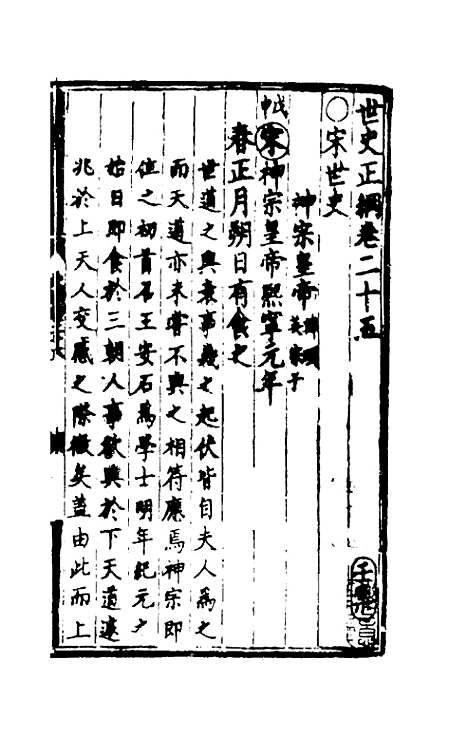 世史正綱卷二十五
○宋世史
神宗皇帝 諱頊 英宗子
戊申 宋 神宗皇帝熙寧元年
春正月朔日有食之
世道之興衰事幾之起伏皆自夫人為之
而天道亦未嘗不與之相符應焉神宗即
位之初首召王安石為學士明年紀元之
始日即食於三朝人事欲興於下天道遽
兆於上天人交感之際微矣蓋由此而上